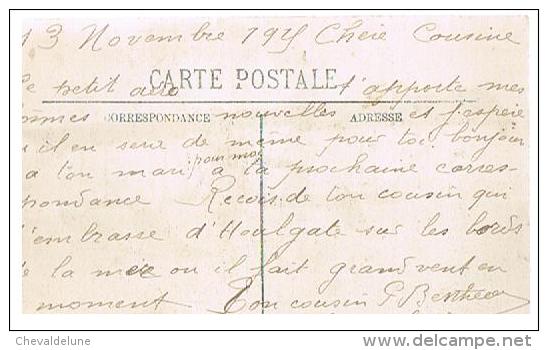 13 Novembre 1915 Chère Cousine
Ce petit avro t'apporte mes
CARTE POSTALE
bonnes nouvelles et j'espère
CORRESPONDANCE ADRESSE
qu'il en sere de même pour toi. bonjour
pour moi
a ton mari a la prochaine corres-
pondance Recois de ton cousin qui
t'embrasse d'Houlgate sur les bords
de la mer ou il fait grand vent en
moment Ton cousin G Berthe
Chevaldelune www.delcampe.net